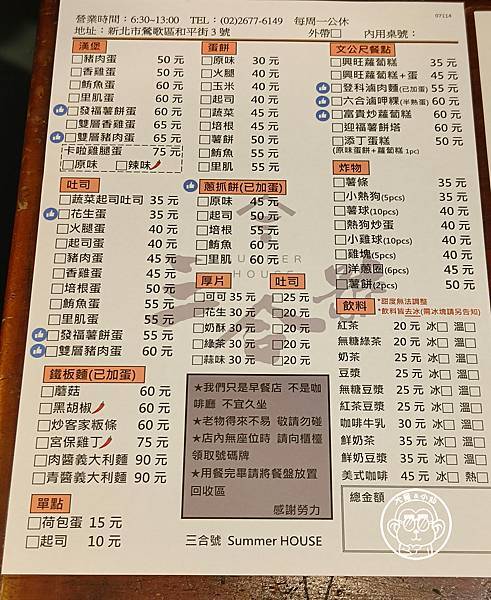 07114
營業時間：6:30~13:00 TEL：(02)2677-6149 每周一公休
地址：新北市鶯歌區和平街3號 外帶□ 內用桌號：
漢堡
□豬肉蛋 50 元
□香雞蛋 50 元
□鮪魚蛋 60 元
□里肌蛋 60 元
□發福薯餅蛋 60 元
□雙層香雞蛋 65 元
□雙層豬肉蛋 65 元
卡啦雞腿蛋 75 元
□原味 □辣味
吐司
□蔬菜起司吐司 35 元
□花生蛋 35 元
□火腿蛋 40 元
□起司蛋 40 元
□豬肉蛋 45 元
□香雞蛋 45 元
□培根蛋 50 元
□鮪魚蛋 55 元
□里肌蛋 55 元
□發福薯餅蛋 55 元
□雙層豬肉蛋 60 元
鐵板麵(已加蛋)
□蘑菇 60 元
□黑胡椒 60 元
□炒客家粄條 60 元
□宮保雞丁 75 元
□肉醬義大利麵 90 元
□青醬義大利麵 90 元
單點
□荷包蛋 15 元
□起司 10 元
蛋餅
□原味 30 元
□火腿 40 元
□玉米 40 元
□起司 40 元
□蔬菜 45 元
□培根 45 元
□薯餅 50 元
□鮪魚 55 元
□里肌 55 元
蔥抓餅(已加蛋)
□原味 45 元
□起司 50 元
□培根 55 元
□鮪魚 60 元
□里肌 60 元
厚片 吐司
□可可 35 元 □25 元
□花生 30 元 □20 元
□奶酥 30 元 □20 元
□綠茶 30 元 □20 元
□蒜味 30 元 □20 元
★我們只是早餐店 不是咖
啡廳 不宜久坐
★老物得來不易 敬請勿碰
★店內無座位時 請向櫃檯
領取號碼牌
★用餐完畢請將餐盤放置
回收區
感謝勞力
三合號 Summer HOUSE
文公尺餐點
□興旺蘿蔔糕 35 元
□興旺蘿蔔糕+蛋 45 元
□登科滷肉麵(已加蛋) 55 元
□六合滷呷粿(半熟蛋) 60 元
□富貴炒蘿蔔糕 60 元
□迎福薯餅塔 60 元
□添丁蛋糕 50 元
(原味蛋餅+蘿蔔糕 1pc)
炸物
□薯條 35 元
□小熱狗(5pcs) 35 元
□薯球(10pcs) 40 元
□熱狗炒蛋 40 元
□小雞球(10pcs) 40 元
□雞塊(5pcs) 40 元
□洋蔥圈(6pcs) 45 元
□薯餅(2pcs) 50 元
飲料
*甜度無法調整
*飲料皆去冰(需冰塊請另告知)
紅茶 20 元 冰□ 溫□
無糖綠茶 20 元 冰□ 溫□
奶茶 25 元 冰□ 溫□
豆漿 25 元 冰□ 溫□
無糖豆漿 25 元 冰□ 溫□
紅茶豆漿 25 元 冰□ 溫□
咖啡牛乳 30 元 冰□ 溫□
鮮奶茶 35 元 冰□ 溫□
鮮奶豆漿 35 元 冰□ 溫□
美式咖啡 45 元 冰□ 熱□
總金額